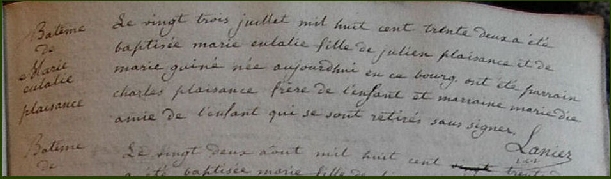 Batême
de
Marie
eulalie
plaisance
Le vingt trois juillet mil huit cent trente deux a été
baptisée marie eulalie fille de julien plaisance et de
marie guiné née aujourdhui en ce bourg, ont été parrain
charles plaisance frère de l'enfant et marraine marie die
amie de l'enfant qui se sont retirés sans signer.
Lanier
Batême
de
Le vingt deux aout mil huit cent vingt trente
été baptisée marie fille de